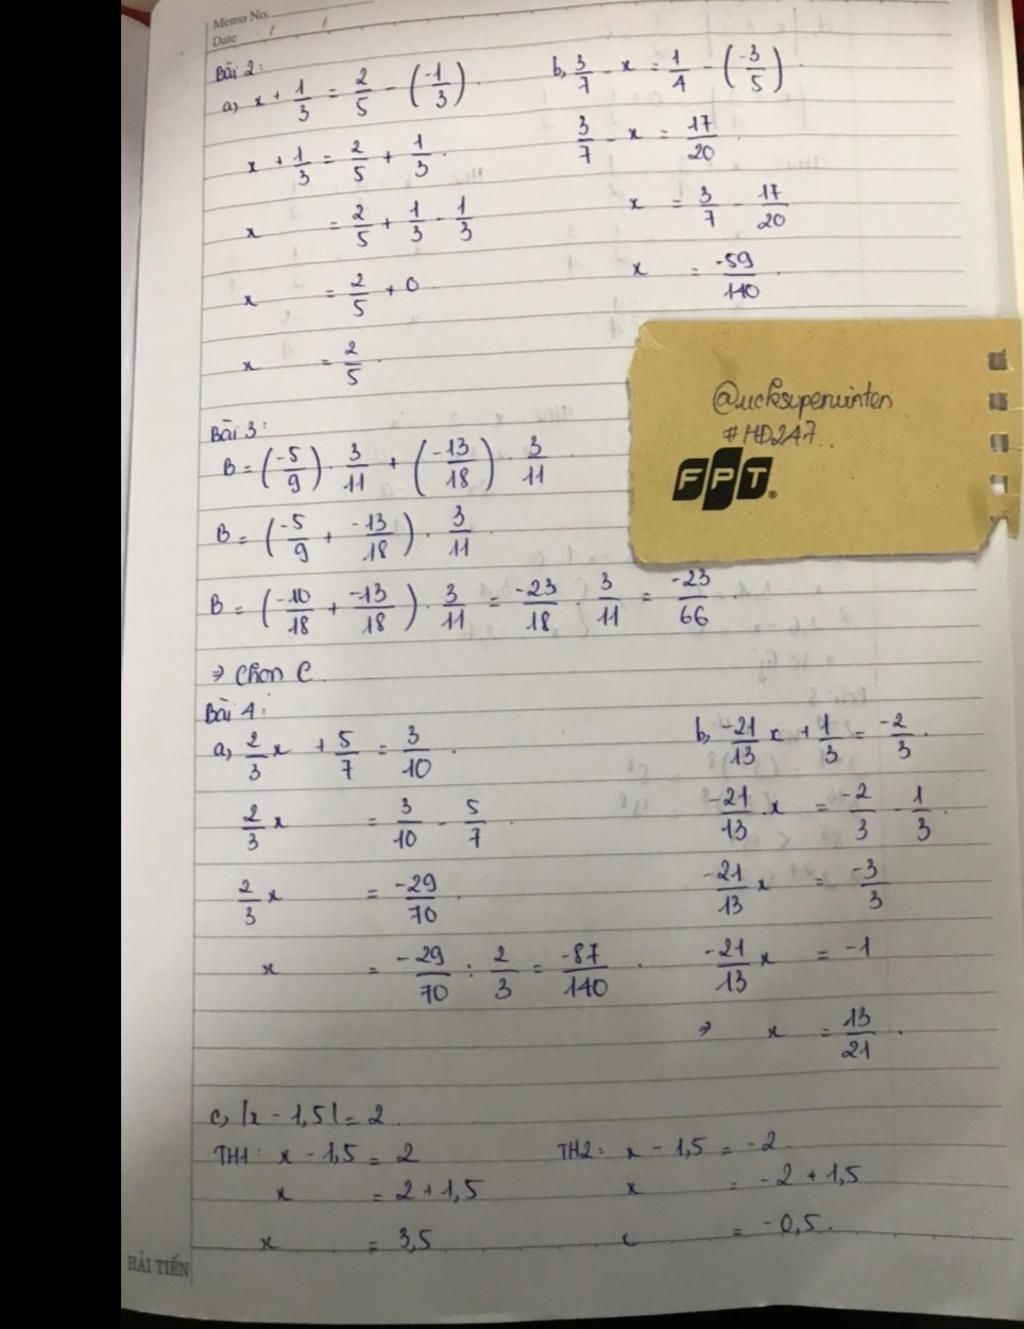 Memo No.
Date / /
Bài 2:
a, x + 1/3 = 2/5 - (-1/3)
x + 1/3 = 2/5 + 1/3
x = 2/5 + 1/3 - 1/3
x = 2/5 + 0
x = 2/5
b, 3/7 - x = 1/4 - (-3/5)
3/7 - x = 17/20
x = 3/7 - 17/20
x = -59/140
@ucksuperwinten
#HD247..
FPT
Bài 3:
B = (-5/9) . 3/11 + (-13/18) . 3/11
B = (-5/9 + -13/18) . 3/11
B = (-10/18 + -13/18) . 3/11 = -23/18 . 3/11 = -23/66
⇒ Chọn C
Bài 4:
a, 2/3 x + 5/7 = 3/10
2/3 x = 3/10 - 5/7
2/3 x = -29/70
x = -29/70 : 2/3 = -87/140
b, -21/13 x + 1/3 = -2/3
-21/13 . x = -2/3 - 1/3
-21/13 x = -3/3
-21/13 x = -1
⇒ x = 13/21
c, |x - 1,5| = 2
TH1: x - 1,5 = 2
x = 2 + 1,5
x = 3,5
TH2: x - 1,5 = -2
x = -2 + 1,5
x = -0,5.
HẢI TIẾN